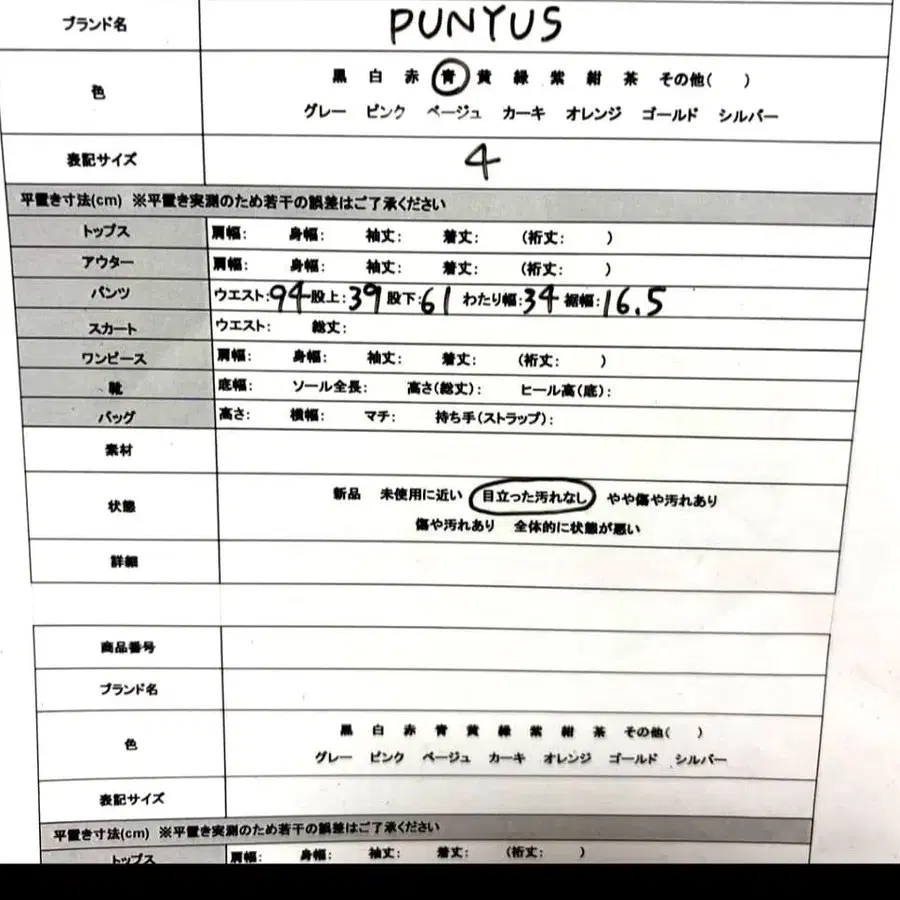 ブランド名 PUNYUS
色 黒 白 赤 青 黄 緑 紫 紺 茶 その他( )
グレー ピンク ベージュ カーキ オレンジ ゴールド シルバー
表記サイズ 4
平置き寸法(cm) ※平置き実測のため若干の誤差はご了承ください
トップス 肩幅: 身幅: 袖丈: 着丈: (裄丈: )
アウター 肩幅: 身幅: 袖丈: 着丈: (裄丈: )
パンツ ウエスト:94 股上:39 股下:61 わたり幅:34 裾幅:16.5
スカート ウエスト: 総丈:
ワンピース 肩幅: 身幅: 袖丈: 着丈: (裄丈: )
靴 底幅: ソール全長: 高さ(総丈): ヒール高(底):
バッグ 高さ: 横幅: マチ: 持ち手(ストラップ):
素材
状態 新品 未使用に近い 目立った汚れなし やや傷や汚れあり
傷や汚れあり 全体的に状態が悪い
詳細
商品番号
ブランド名
色 黒 白 赤 青 黄 緑 紫 紺 茶 その他( )
グレー ピンク ベージュ カーキ オレンジ ゴールド シルバー
表記サイズ
平置き寸法(cm) ※平置き実測のため若干の誤差はご了承ください
トップス 肩幅: 身幅: 袖丈: 着丈: (裄丈: )